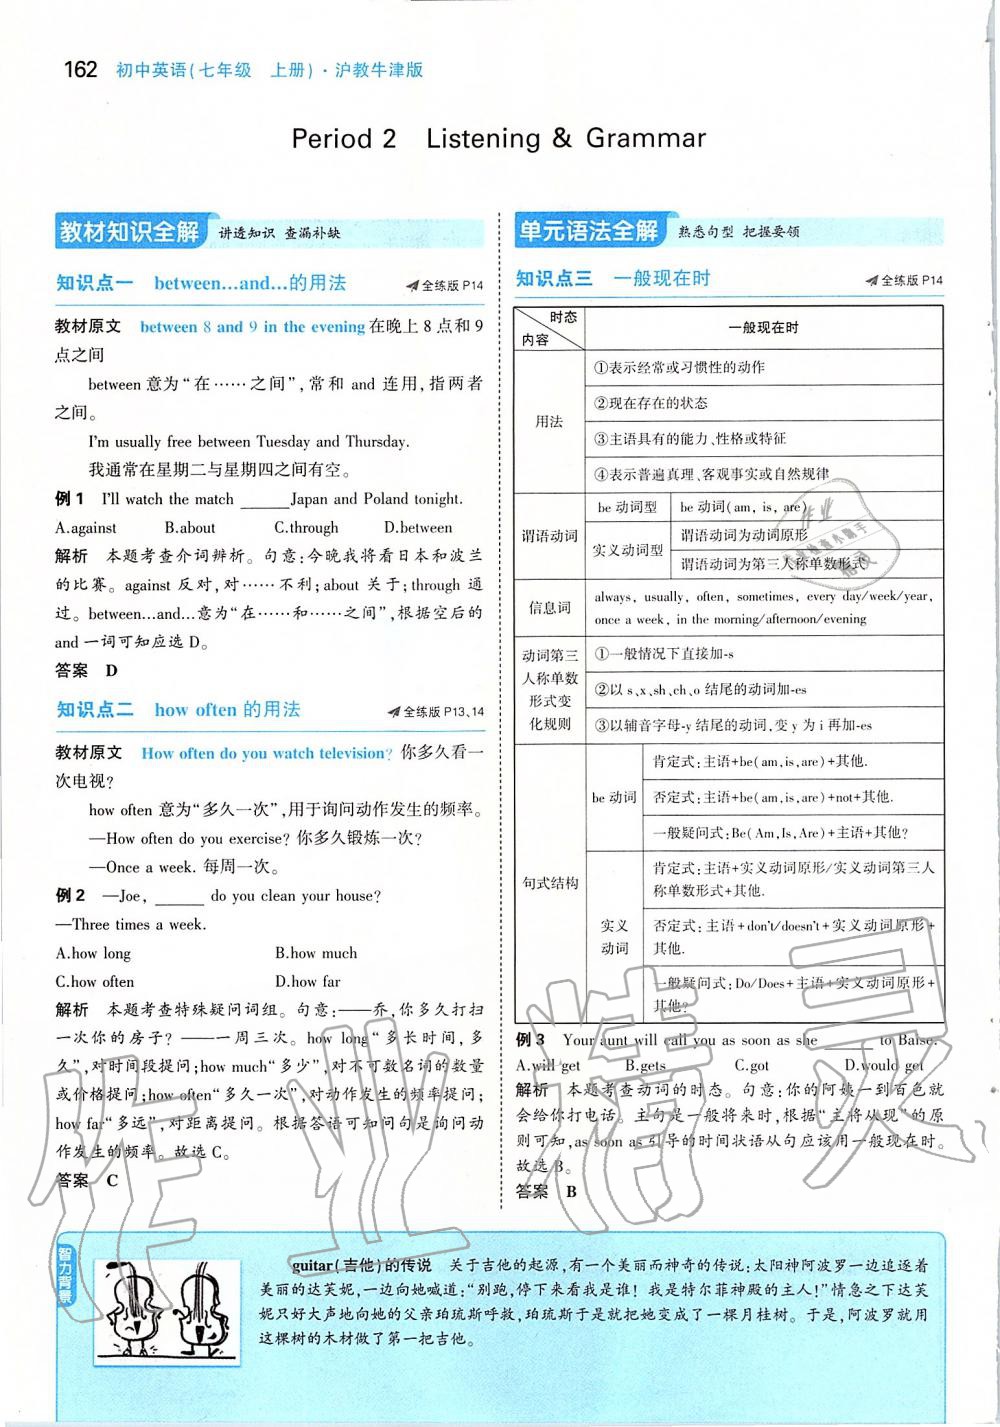 162 初中英语(七年级 上册)·沪教牛津版
Period 2 Listening & Grammar
教材知识全解 讲透知识 查漏补缺
知识点一 between…and…的用法 全练版 P14
教材原文 between 8 and 9 in the evening在晚上8点和9
点之间
between意为“在……之间”,常和 and 连用,指两者
之间。
I'm usually free between Tuesday and Thursday.
我通常在星期二与星期四之间有空。
例1 I'll watch the match ______Japan and Poland tonight.
A.against B.about C.through D.between
解析 本题考查介词辨析。句意:今晚我将看日本和波兰
的比赛。against 反对,对……不利;about 关于;through 通
过。between…and…意为“在……和……之间”,根据空后的
and一词可知应选D。
答案 D
知识点二 how often 的用法 全练版 P13、14
教材原文 How often do you watch television? 你多久看一
次电视?
how often 意为“多久一次”,用于询问动作发生的频率。
—How often do you exercise? 你多久锻炼一次?
—Once a week. 每周一次。
例2 —Joe, ______ do you clean your house?
—Three times a week.
A.how long B.how much
C.how often D.how far
解析 本题考查特殊疑问词组。句意:——乔,你多久打扫
一次你的房子?——一周三次。how long“多长时间,多
久”,对时间段提问;how much“多少”,对不可数名词的数量
或价格提问;how often“多久一次”,对动作发生的频率提问;
how far“多远”,对距离提问。根据答语可知问句是询问动
作发生的频率。故选C。
答案 C
单元语法全解 熟悉句型 把握要领
知识点三 一般现在时 全练版 P14
时态
内容
一般现在时
用法
①表示经常或习惯性的动作
②现在存在的状态
③主语具有的能力、性格或特征
④表示普遍真理、客观事实或自然规律
谓语动词
be 动词型 be 动词(am, is, are)
实义动词型
谓语动词为动词原形
谓语动词为第三人称单数形式
信息词
always, usually, often, sometimes, every day/week/year,
once a week, in the morning/afternoon/evening
动词第三
人称单数
形式变
化规则
①一般情况下直接加-s
②以 s、x、sh、ch、o 结尾的动词加-es
③以辅音字母-y结尾的动词,变 y 为 i 再加-es
句式结构
be 动词
肯定式:主语+be(am,is,are)+其他.
否定式:主语+be(am,is,are)+not+其他.
一般疑问式:Be(Am,Is,Are)+主语+其他?
实义
动词
肯定式:主语+实义动词原形/实义动词第三人
称单数形式+其他.
否定式:主语+don't/doesn't+实义动词原形+
其他.
一般疑问式:Do/Does+主语+实义动词原形+
其他?
例3 Your aunt will call you as soon as she ______ to Baise.
A.will get B.gets C.got D.would get
解析 本题考查动词的时态。句意:你的阿姨一到百色就
会给你打电话。主句是一般将来时,根据“主将从现”的原
则可知,as soon as引导的时间状语从句应该用一般现在时。
故选B。
答案 B
智力背景
guitar(吉他)的传说 关于吉他的起源,有一个美丽而神奇的传说:太阳神阿波罗一边追逐着
美丽的达芙妮,一边向她喊道:“别跑,停下来看我是谁!我是特尔菲神殿的主人!”情急之下达芙
妮只好大声地向她的父亲珀琉斯呼救,珀琉斯于是就把她变成了一棵月桂树。于是,阿波罗就用
这棵树的木材做了第一把吉他。
作业精灵